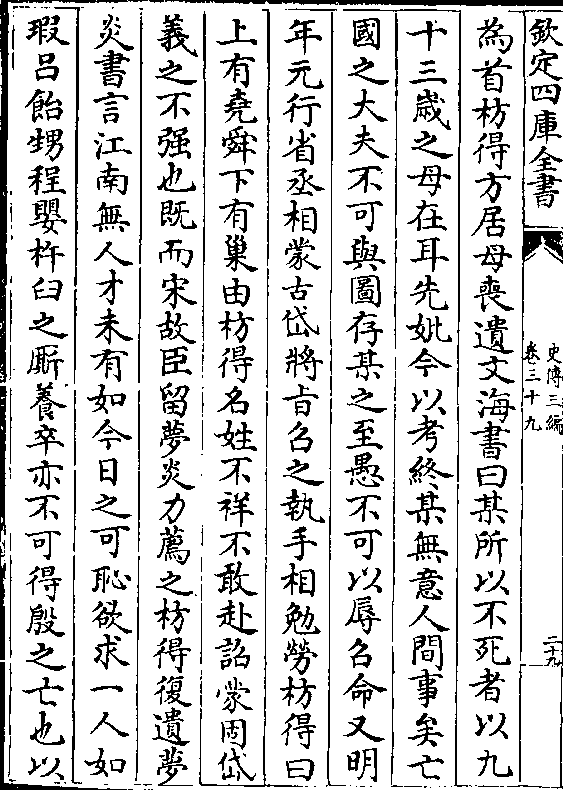 欽定四庫全書
史傳三編
卷三十九
二十九
為首枋得方居母喪遺文海書曰某所以不死者以九
十三歲之母在耳先妣今以考終某無意人間事矣亡
國之大夫不可與圖存某之至愚不可以辱召命又明
年元行省丞相蒙古岱將旨召之執手相勉勞枋得曰
上有堯舜下有巢由枋得名姓不祥不敢赴詔蒙固岱
義之不强也既而宋故臣留夢炎力薦之枋得復遺夢
炎書言江南無人才未有如今日之可恥欲求一人如
瑕呂飴甥程嬰杵臼之廝養卒亦不可得殷之亡也以